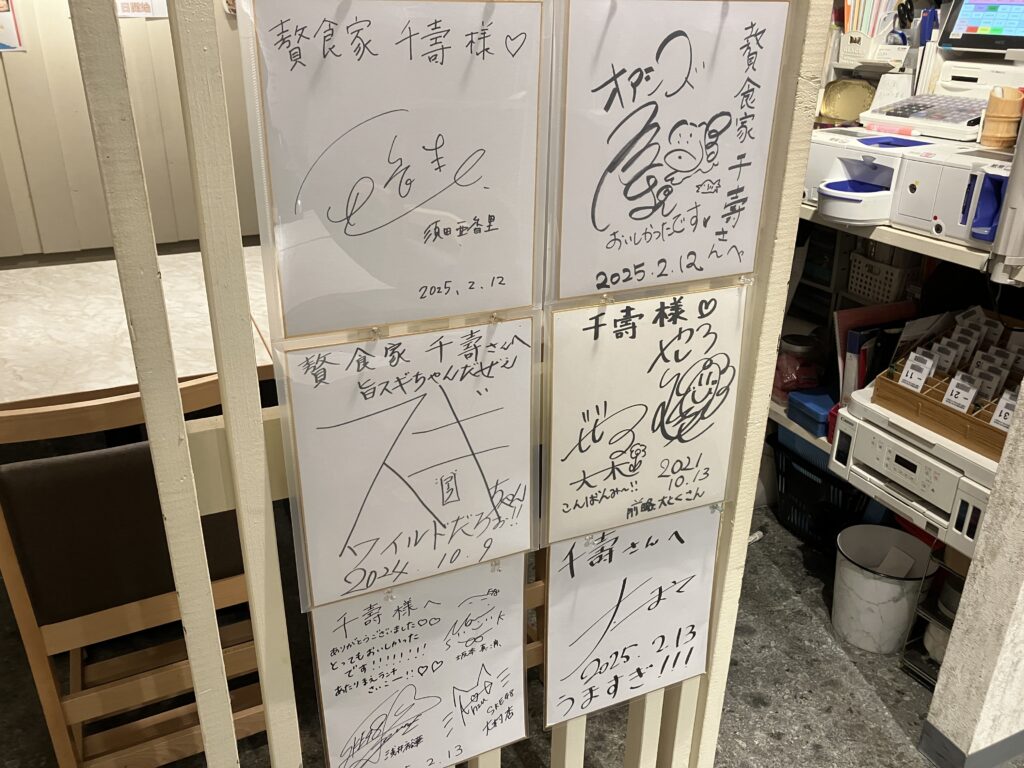 贅食家 千壽 様♡
須田亜香里
2025.2.12
贅食家 千壽さんへ
オアシズ
おいしかったです
2025.2.12
贅食家 千壽さんへ
旨スギちゃんだぜぇ
スギちゃん
ワイルドだろぉ!!
2024.10.9
千壽 様♡
ビビる
大木
こんばんみ〜!!
2021
10.13
前略、大とくさん
千壽様へ
ありがとうございました♡♡
とってもおいしかった
です!!!!!!!
あたりまえランチ
さいこー!!♡♡
SKE48
2.13
千壽さんへ
2025.2.13
うますぎ!!!
11
21
31